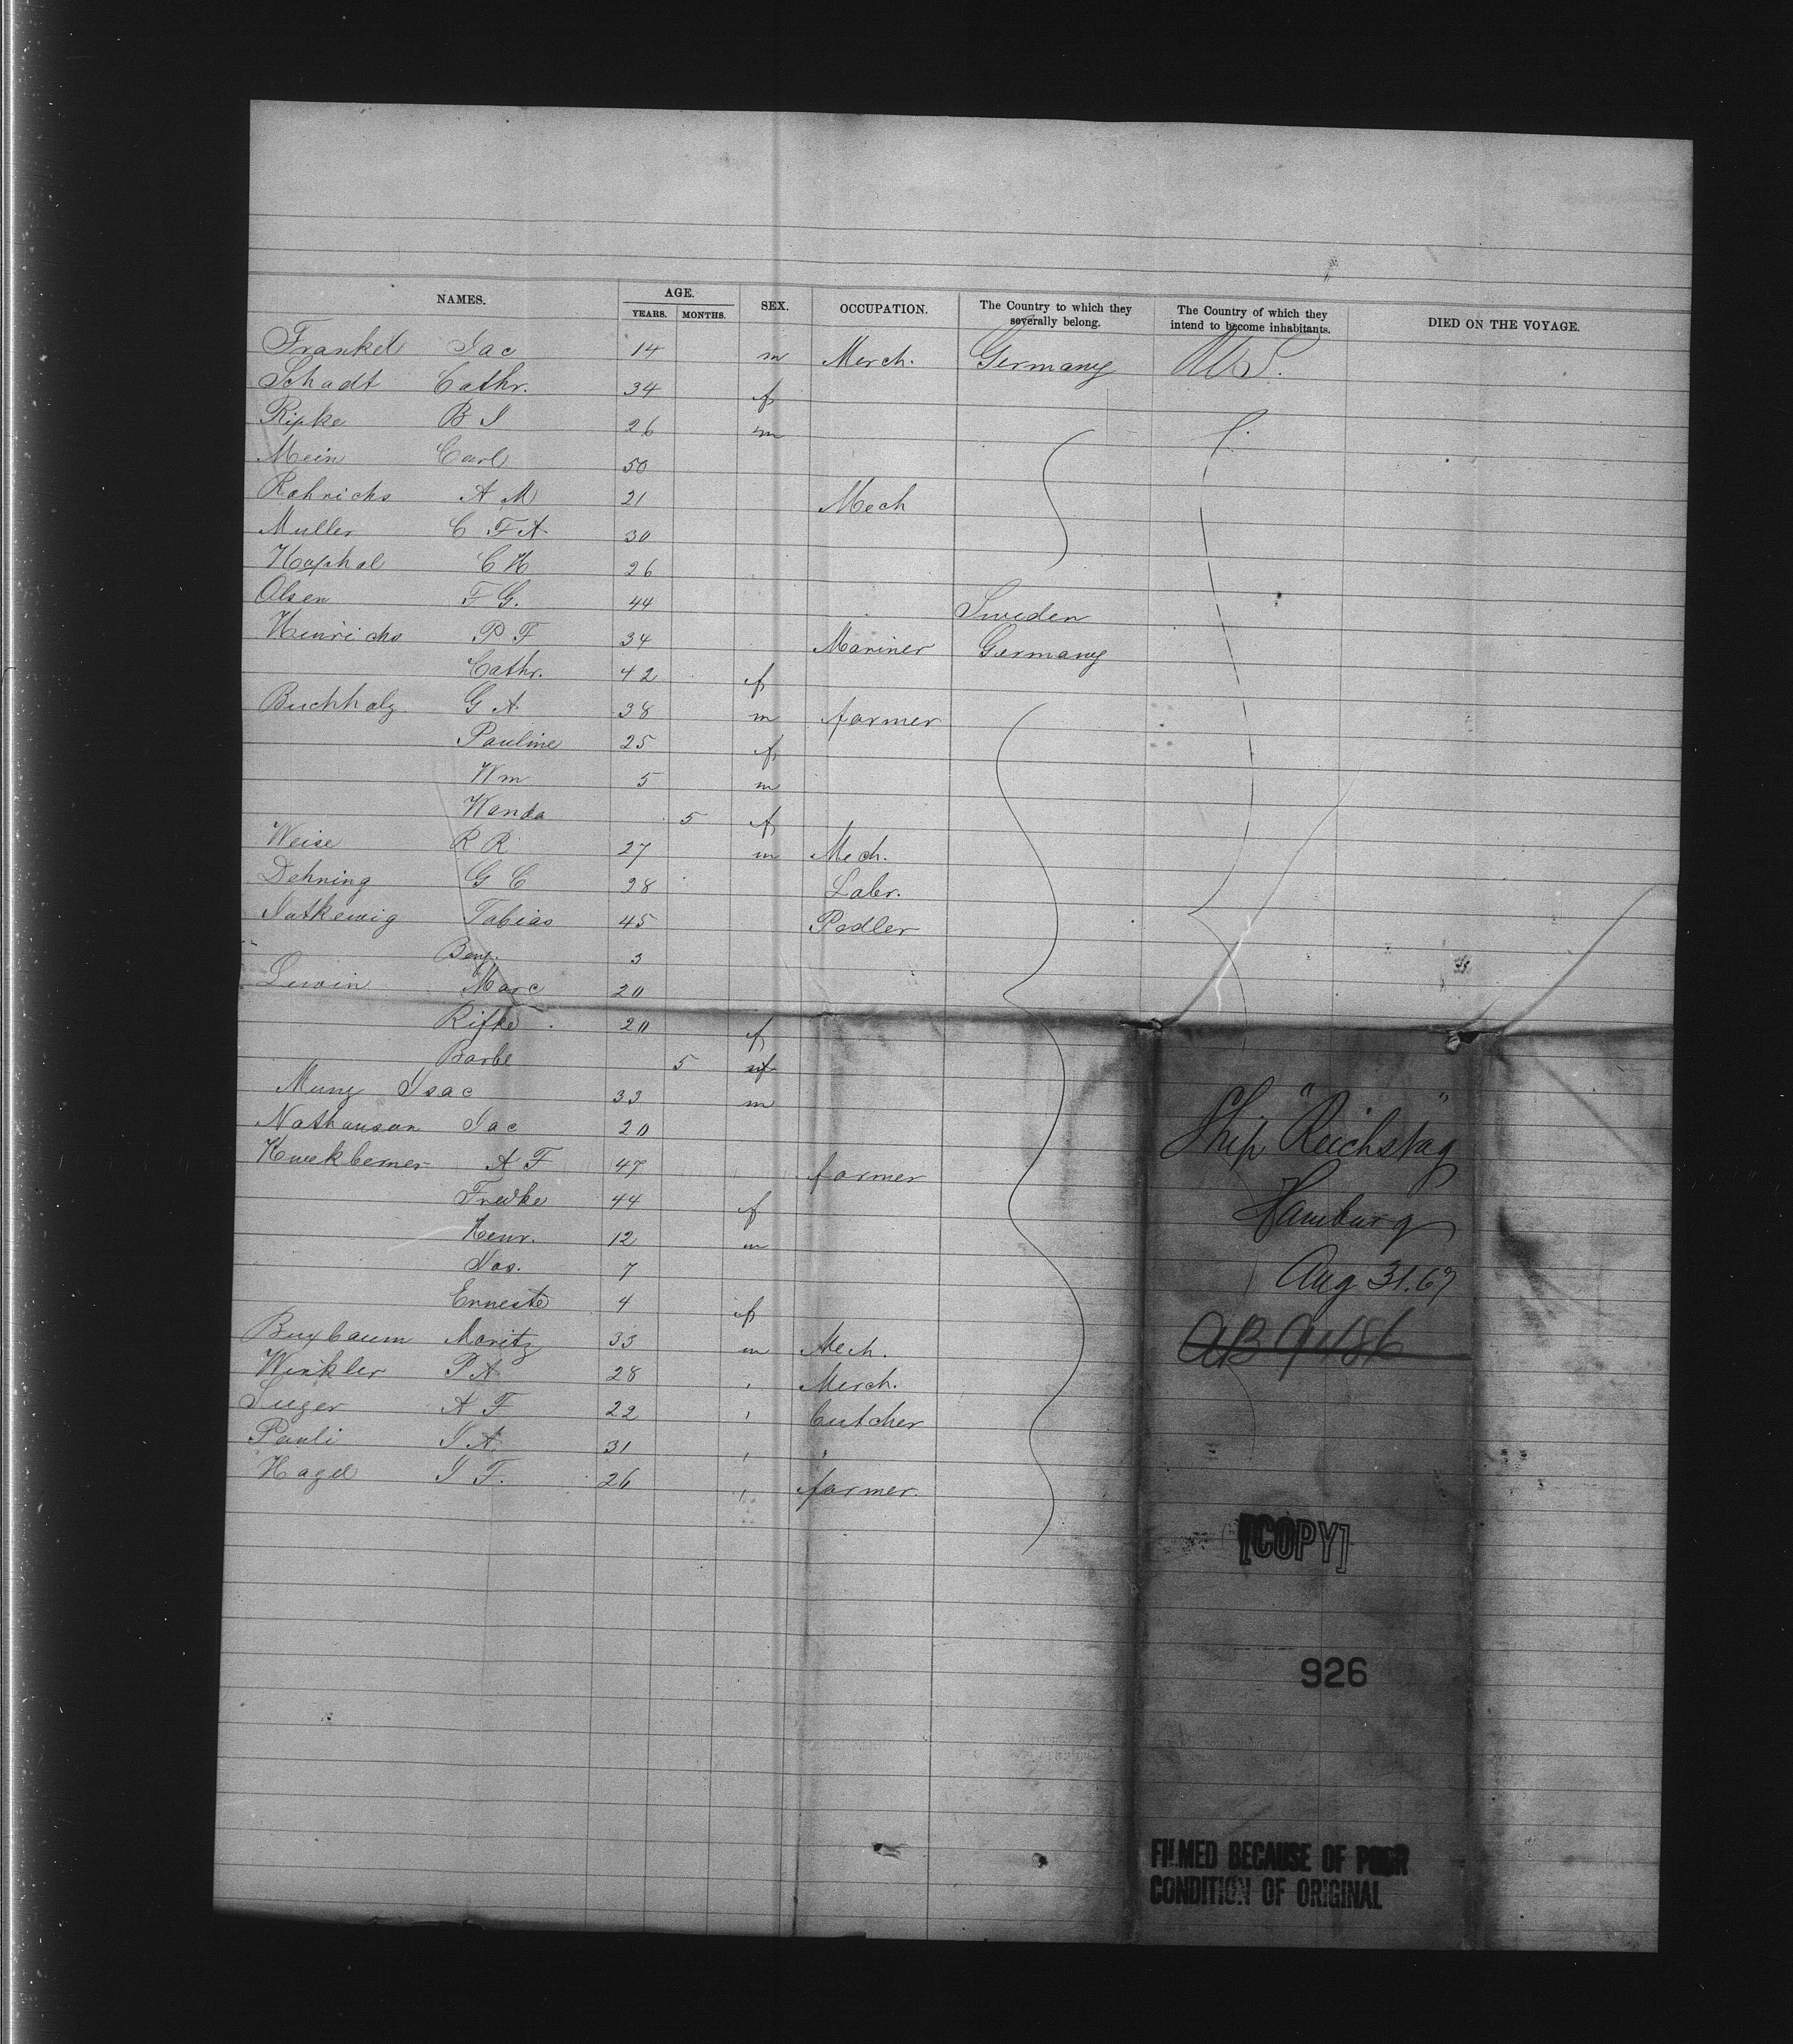 NAMES. AGE. SEX. OCCUPATION. The Country to which they severally belong. The Country of which they intend to become inhabitants. DIED ON THE VOYAGE.
YEARS. MONTHS.
Frankel Jac 14 m Merch. Germany U.S.
Schadt Cathr. 34 f
Ripke B J 26 m
Mein Carl 50
Rohrichs A M 21 Mech
Muller C F A 30
C H 26
Olsen F G. 44 Sweden
Henrichs P F 34 Mariner Germany
Cathr. 42 f
Buchholz G A 38 m farmer
Pauline 25 f
Wm 5 m
Wanda 5 f
Weise R R 27 m Mech.
Dehning G C 28 Labr.
Jutkewig Tobias 45 Pedler
Benj. 3
Lewin Marc 20
Rifke 20 f
Barbe 5 f
Munz Isac 33 m
Nathanson Jac 20
A F 47 farmer
Fredke 44 f
Henr. 12 m
7
Erneste 4 f
Buxbaum Moritz 33 m Mech.
Winkler P A 28 " Merch.
A F 22 " butcher
Pauli J A 31 " "
Hagel J F. 26 " farmer.
Ship "Reichstag"
Hamburg
Aug 31. 67
[COPY]
926
FILMED BECAUSE OF POOR
CONDITION OF ORIGINAL